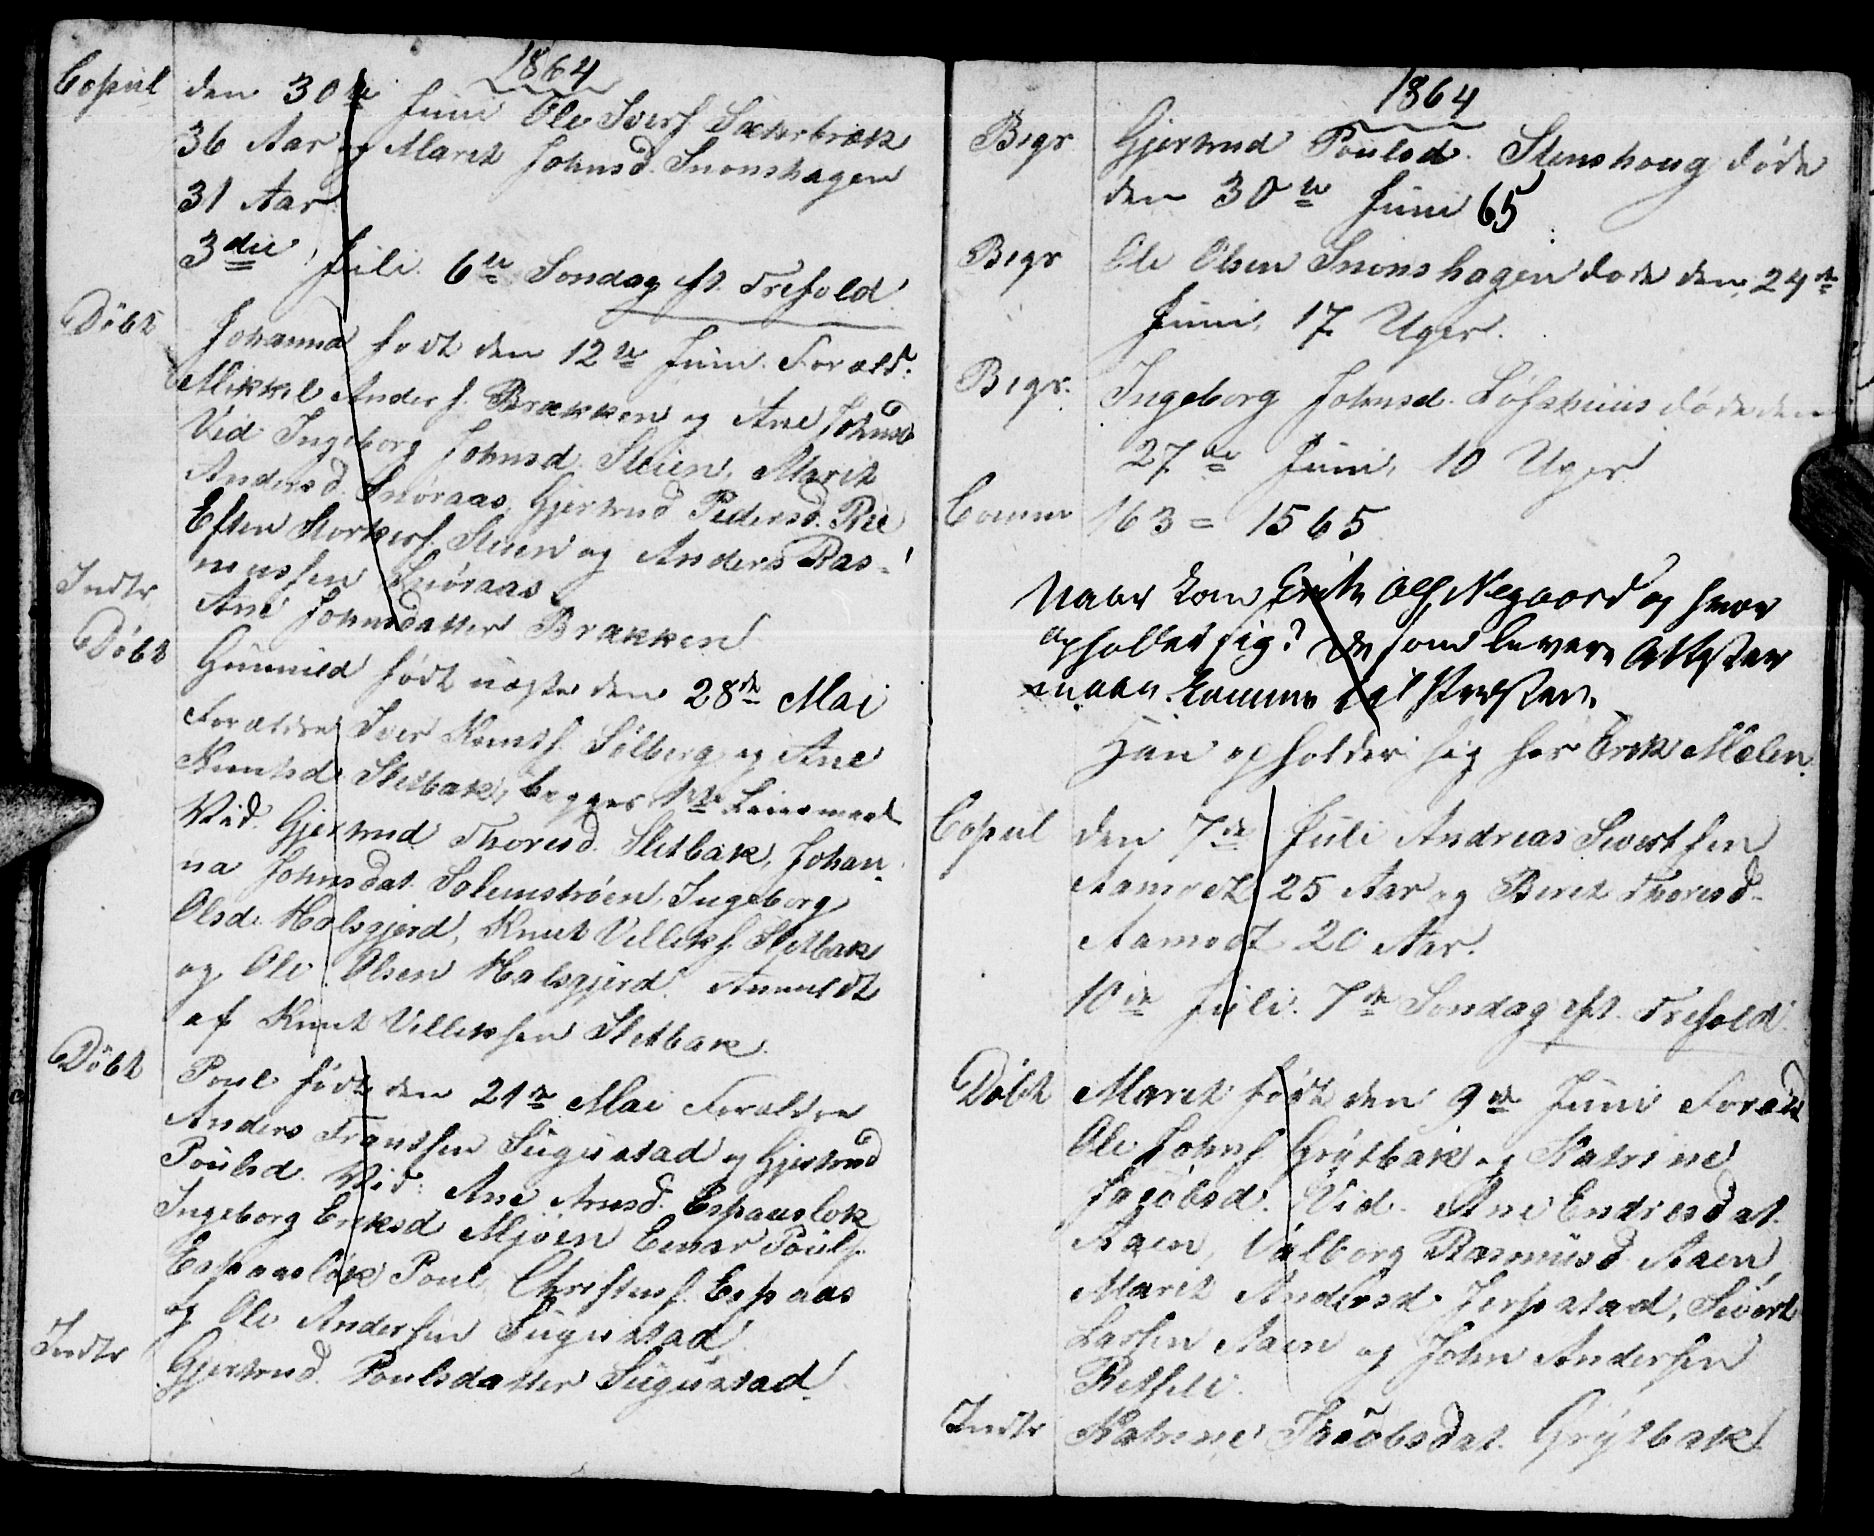 1864
Copul den 30te Juni Ole Ivers. Sæterbræk
36 Aar og Marit Johnsd. Snoushagen
31 Aar
3die Juli 6te Søndag eft. Trefold.
Døbt Johanna født den 12te Juni. Foræld:
Mikkel Anders. Brækken og Ane Johnsd
Vid Ingeborg Johnsd. Steien, Marit
Andersd. Snøraas, Gjertrud Pedersd. Ree
Esten Storkers. Steien og Anders Ras-
mussen Snøraas
Indtr Ane Johnsdatter Brækken
Døbt Gunnild født uægte den 28de Mai
Forældre Iver Knuts. Sølberg og Ane
Knutsd. Sletbak, begges 1ste Leiermaal
Vid. Gjertrud Thoresd. Sletbak, Johan-
na Johnsdat. Solemstrøen, Ingeborg
Olsd. Halsgjerd, Knut Villiks. Sletbak
og Ole Olsen Halsgjerd. Anmeldt
af Knut Villiksen Sletbak.
Døbt Poul født den 21de Mai Forældre
Anders Frantsen Sugustad og Gjertrud
Poulsd. Vid: Ane Arnsd. Espaasløk
Ingeborg Eriksd Mjøen Einar Pouls.
Espaasløk Poul Christens. Espaas
og Ole Andersen Sugustad
Indtr Gjertrud Poulsdatter Sugustad
1864
Begr Gjertrud Poulsd. Stenshoug døde
den 30te Juni 65
Begr Ole Olsen Snoushagen døde den 24de
Juni, 17 Uger.
Begr. Ingeborg Johnsd. Løfshuus døde den
27de Juni, 10 Uger
Comm 163 = 1565
Naar kom Erik Ols. Negaard og hvor
opholder sig? De som levere Attester
maae komme til Præsten.
Han opholder sig hos Erik Mælen.
Copul den 7de Juli Andreas Sivertsen
Aamodt 25 Aar og Berit Thoresd.
Aamodt 20 Aar.
10de Juli. 7de Søndag eft. Trefold.
Døbt Marit født den 9de Juni Foræld
Ole Johns. Grytbak og Katrine
Jacobsd. Vid. Ane Endresdat.
Aaen, Valborg Rasmusd. Aaen,
Marit Andersd. Jerpstad, Sivert
Larsen Aaen og John Andersen
Retseli.
Indtr Katrine Jacobsdat. Grytbak